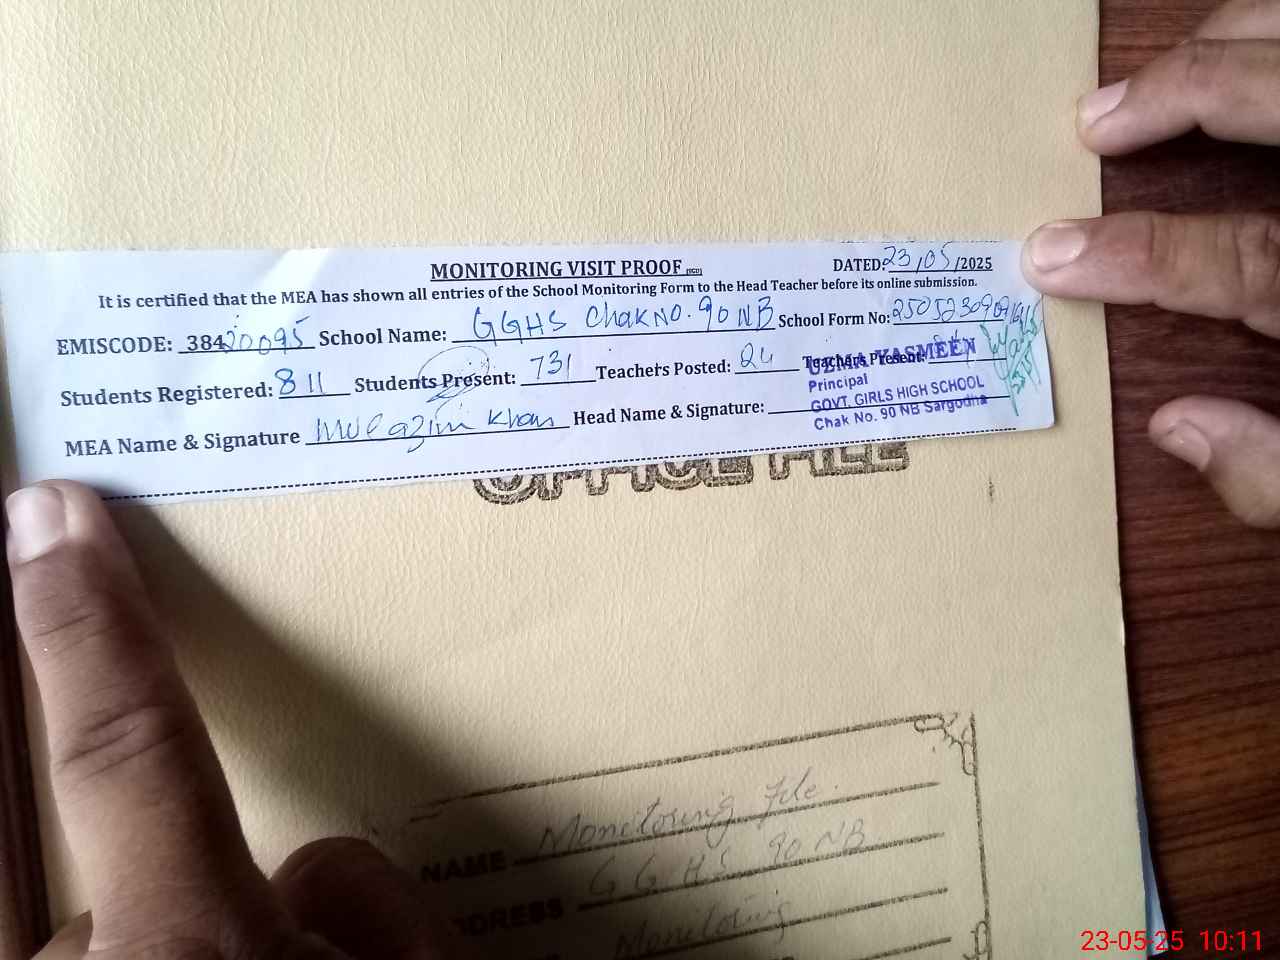 MONITORING VISIT PROOF (SGD)
DATED: 23/05/2025
It is certified that the MEA has shown all entries of the School Monitoring Form to the Head Teacher before its online submission.
EMISCODE: 38420095 School Name: GGHS Chak No. 90 NB School Form No:
Students Registered: 811 Students Present: 731 Teachers Posted: 24 Teachers Present:
UZMA YASMEEN
Principal
GOVT. GIRLS HIGH SCHOOL
Chak No. 90 NB Sargodha
MEA Name & Signature Mulazim Khan Head Name & Signature:
OFFICE FILE
NAME Monitoring File.
ADDRESS G G H S 90 NB
Monitoring
23-05-25 10:11